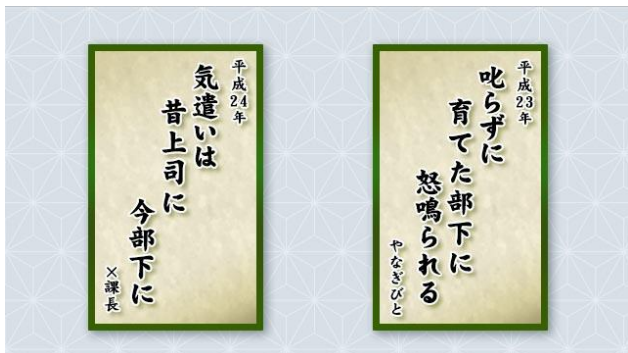 平成23年
叱らずに
育てた部下に
怒鳴られる
やなぎびと
平成24年
気遣いは
昔上司に
今部下に
×課長